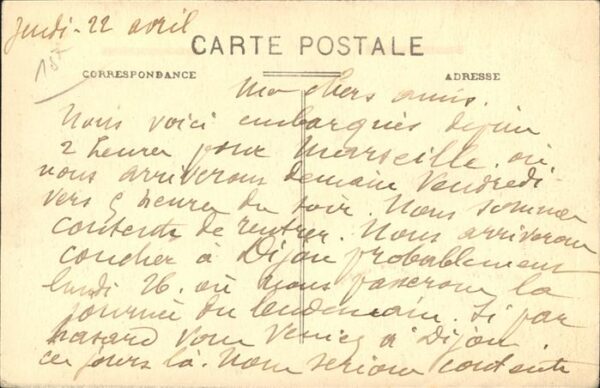 Jeudi - 22 avril
CARTE POSTALE
CORRESPONDANCE
ADRESSE
Mes chers amis.
Nous voici embarqués depuis
2 heures pour Marseille. où
nous arriverons demain Vendredi-
vers 5 heures du soir. Nous sommes
contents de rentrer. Nous arriverons
coucher à Dijon probablement
lundi 26. où nous passerons la
journée du lendemain. Si par
hasard vous veniez à Dijon
ces jours là. nous serions contents